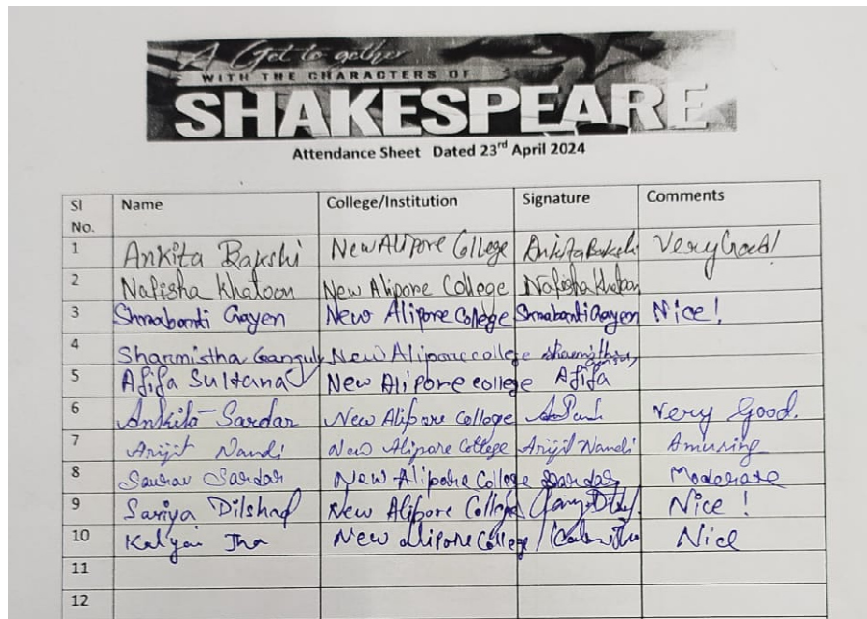 A Get to gether
WITH THE CHARACTERS OF
SHAKESPEARE
Attendance Sheet Dated 23rd April 2024
Sl No. Name College/Institution Signature Comments
1 Ankita Bakshi New Alipore College Ankita Bakshi Very Good!
2 Nafisha Khatoon New Alipore College Nafisha Khatoon
3 Shrabanti Gayen New Alipore College Shrabanti Gayen Nice!
4 Sharmistha Ganguly New Alipore college Sharmistha
5 Afifa Sultana New Alipore college Afifa
6 Ankita Sardar New Alipore College Very Good.
7 Arijit Nandi New Alipore College Arijit Nandi Amusing
8 Saurav Sardar New Alipore College Sardar Moderate
9 Sariya Dilshad New Alipore College Nice !
10 Jha New Alipore College Nice
11
12